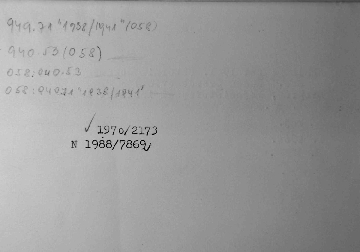 949.71 "1938/1941" (058)
940.53 (058)
058:940.53
058:949.71 "1938/1941"
✓ 1970/2173
N 1988/7869